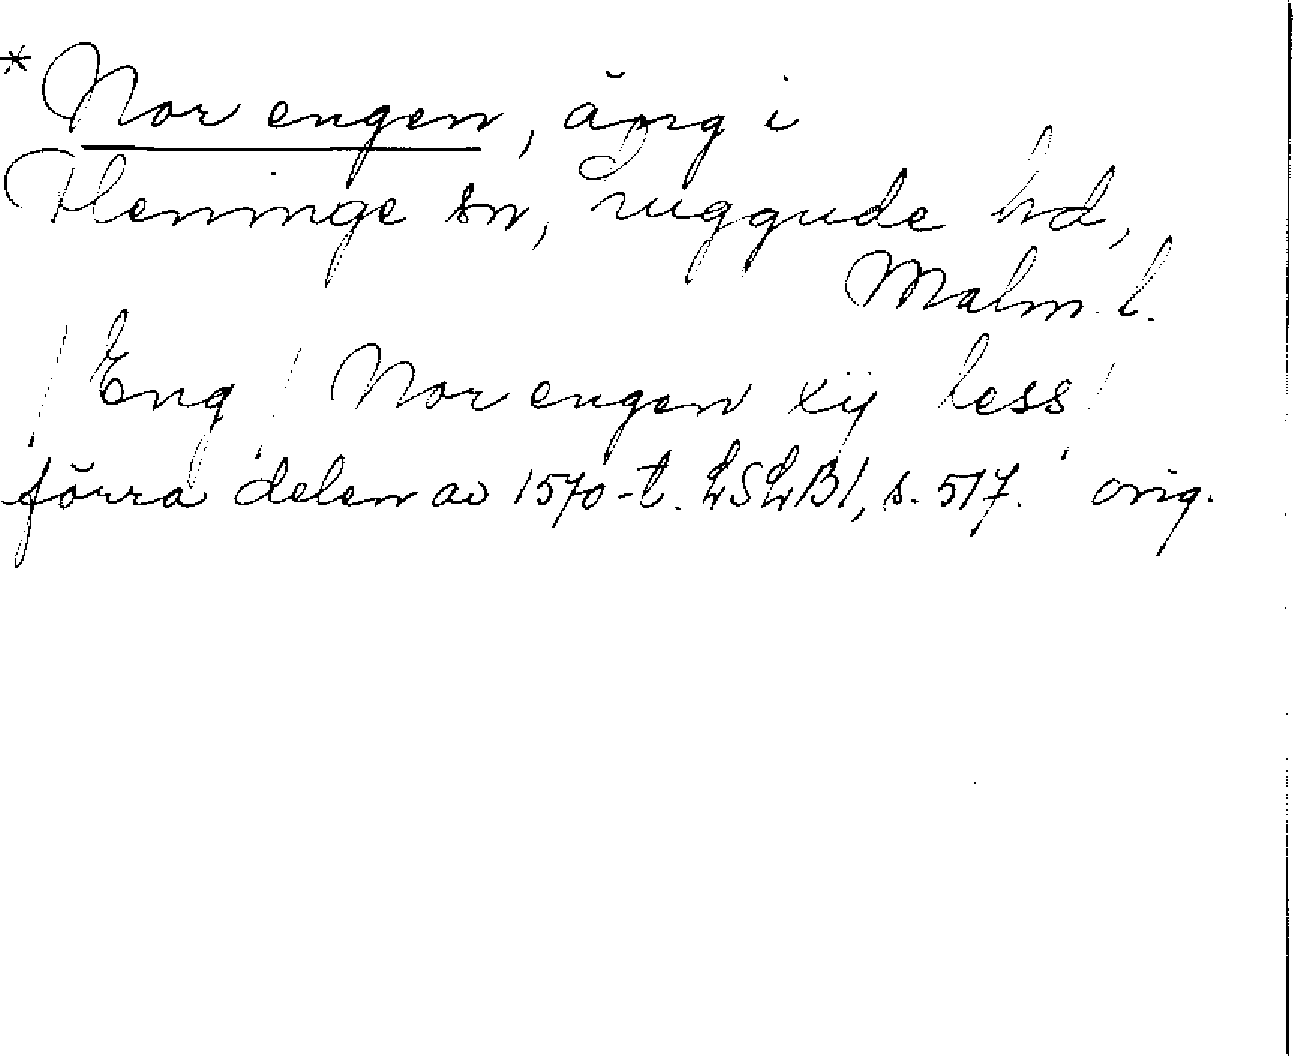 * Nor engen, äng i
Fleninge sn, Luggude hd,
Malm. l.
/Eng/ Nor engen xij less/
förra delen av 1570-t. LSLB1, s. 517. orig.